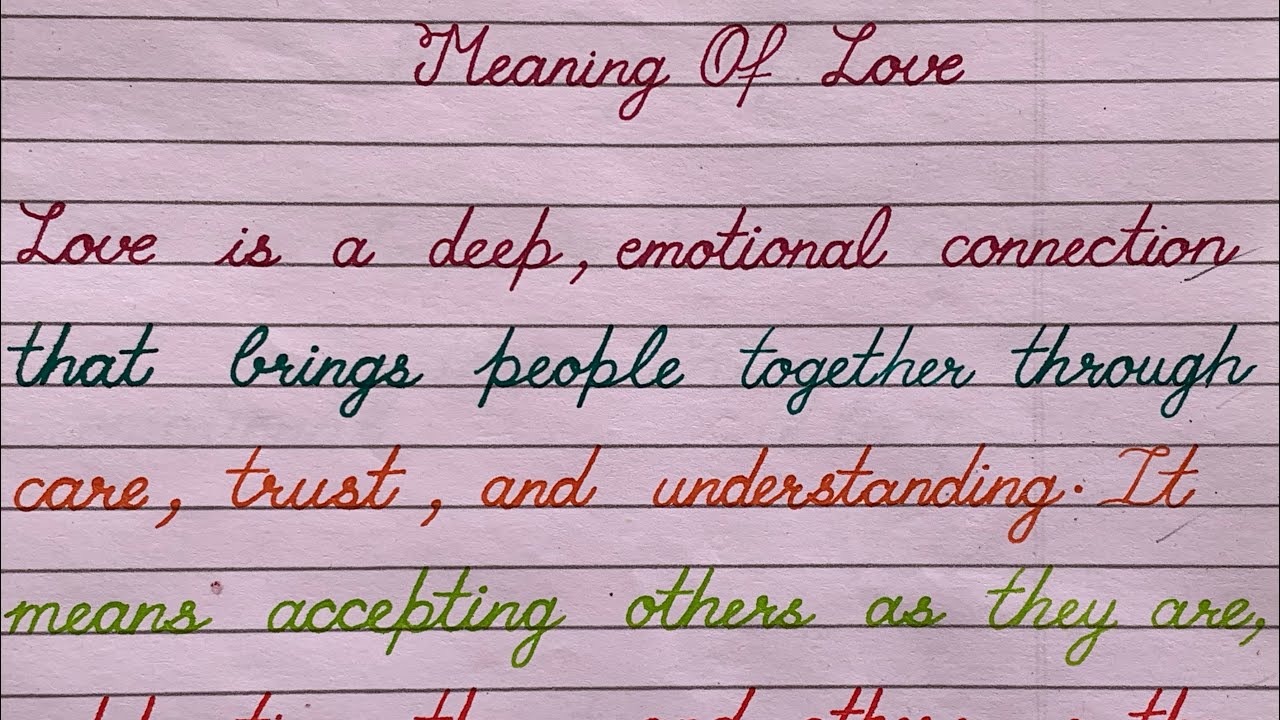 Meaning Of Love
Love is a deep, emotional connection
that brings people together through
care, trust, and understanding. It
means accepting others as they are,